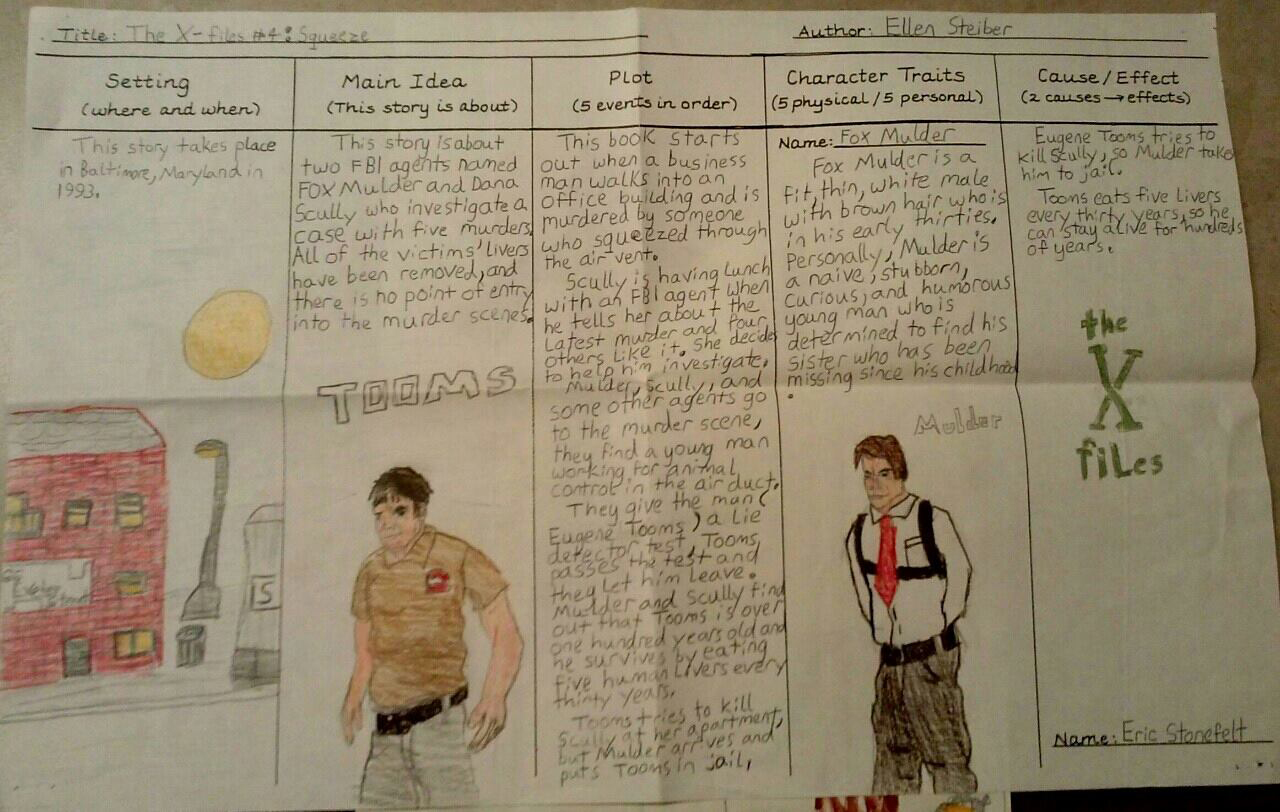 Title: The X-files #4: Squeeze
Author: Ellen Steiber
Setting
(where and when)
This story takes place
in Baltimore, Maryland in
1993.
Main Idea
(This story is about)
This story is about
two FBI agents named
Fox Mulder and Dana
Scully who investigate a
case with five murders.
All of the victims' livers
have been removed, and
there is no point of entry
into the murder scenes.
TOOMS
Plot
(5 events in order)
This book starts
out when a business
man walks into an
office building and is
murdered by someone
who squeezed through
the air vent.
Scully is having lunch
with an FBI agent when
he tells her about the
latest murder and four
others like it. She decides
to help him investigate.
Mulder, Scully, and
some other agents go
to the murder scene,
they find a young man
working for animal
control in the air duct.
They give the man (
Eugene Tooms) a lie
detector test, Tooms,
passes the test and
they let him leave.
Mulder and Scully find
out that Tooms is over
one hundred years old and
he survives by eating
five human livers every
thirty years.
Tooms tries to kill
Scully at her apartment,
but Mulder arrives and
puts Tooms in jail.
Character Traits
(5 physical / 5 personal)
Name: Fox Mulder
Fox Mulder is a
fit, thin, white male
with brown hair who is
in his early thirties.
Personally, Mulder is
a naive, stubborn,
curious, and humorous
young man who is
determined to find his
sister who has been
missing since his childhood
.
Mulder
Cause / Effect
(2 causes → effects)
Eugene Tooms tries to
kill Scully, so Mulder takes
him to jail.
Tooms eats five livers
every thirty years, so he
can stay alive for hundreds
of years.
the
X
files
Name: Eric Stonefelt